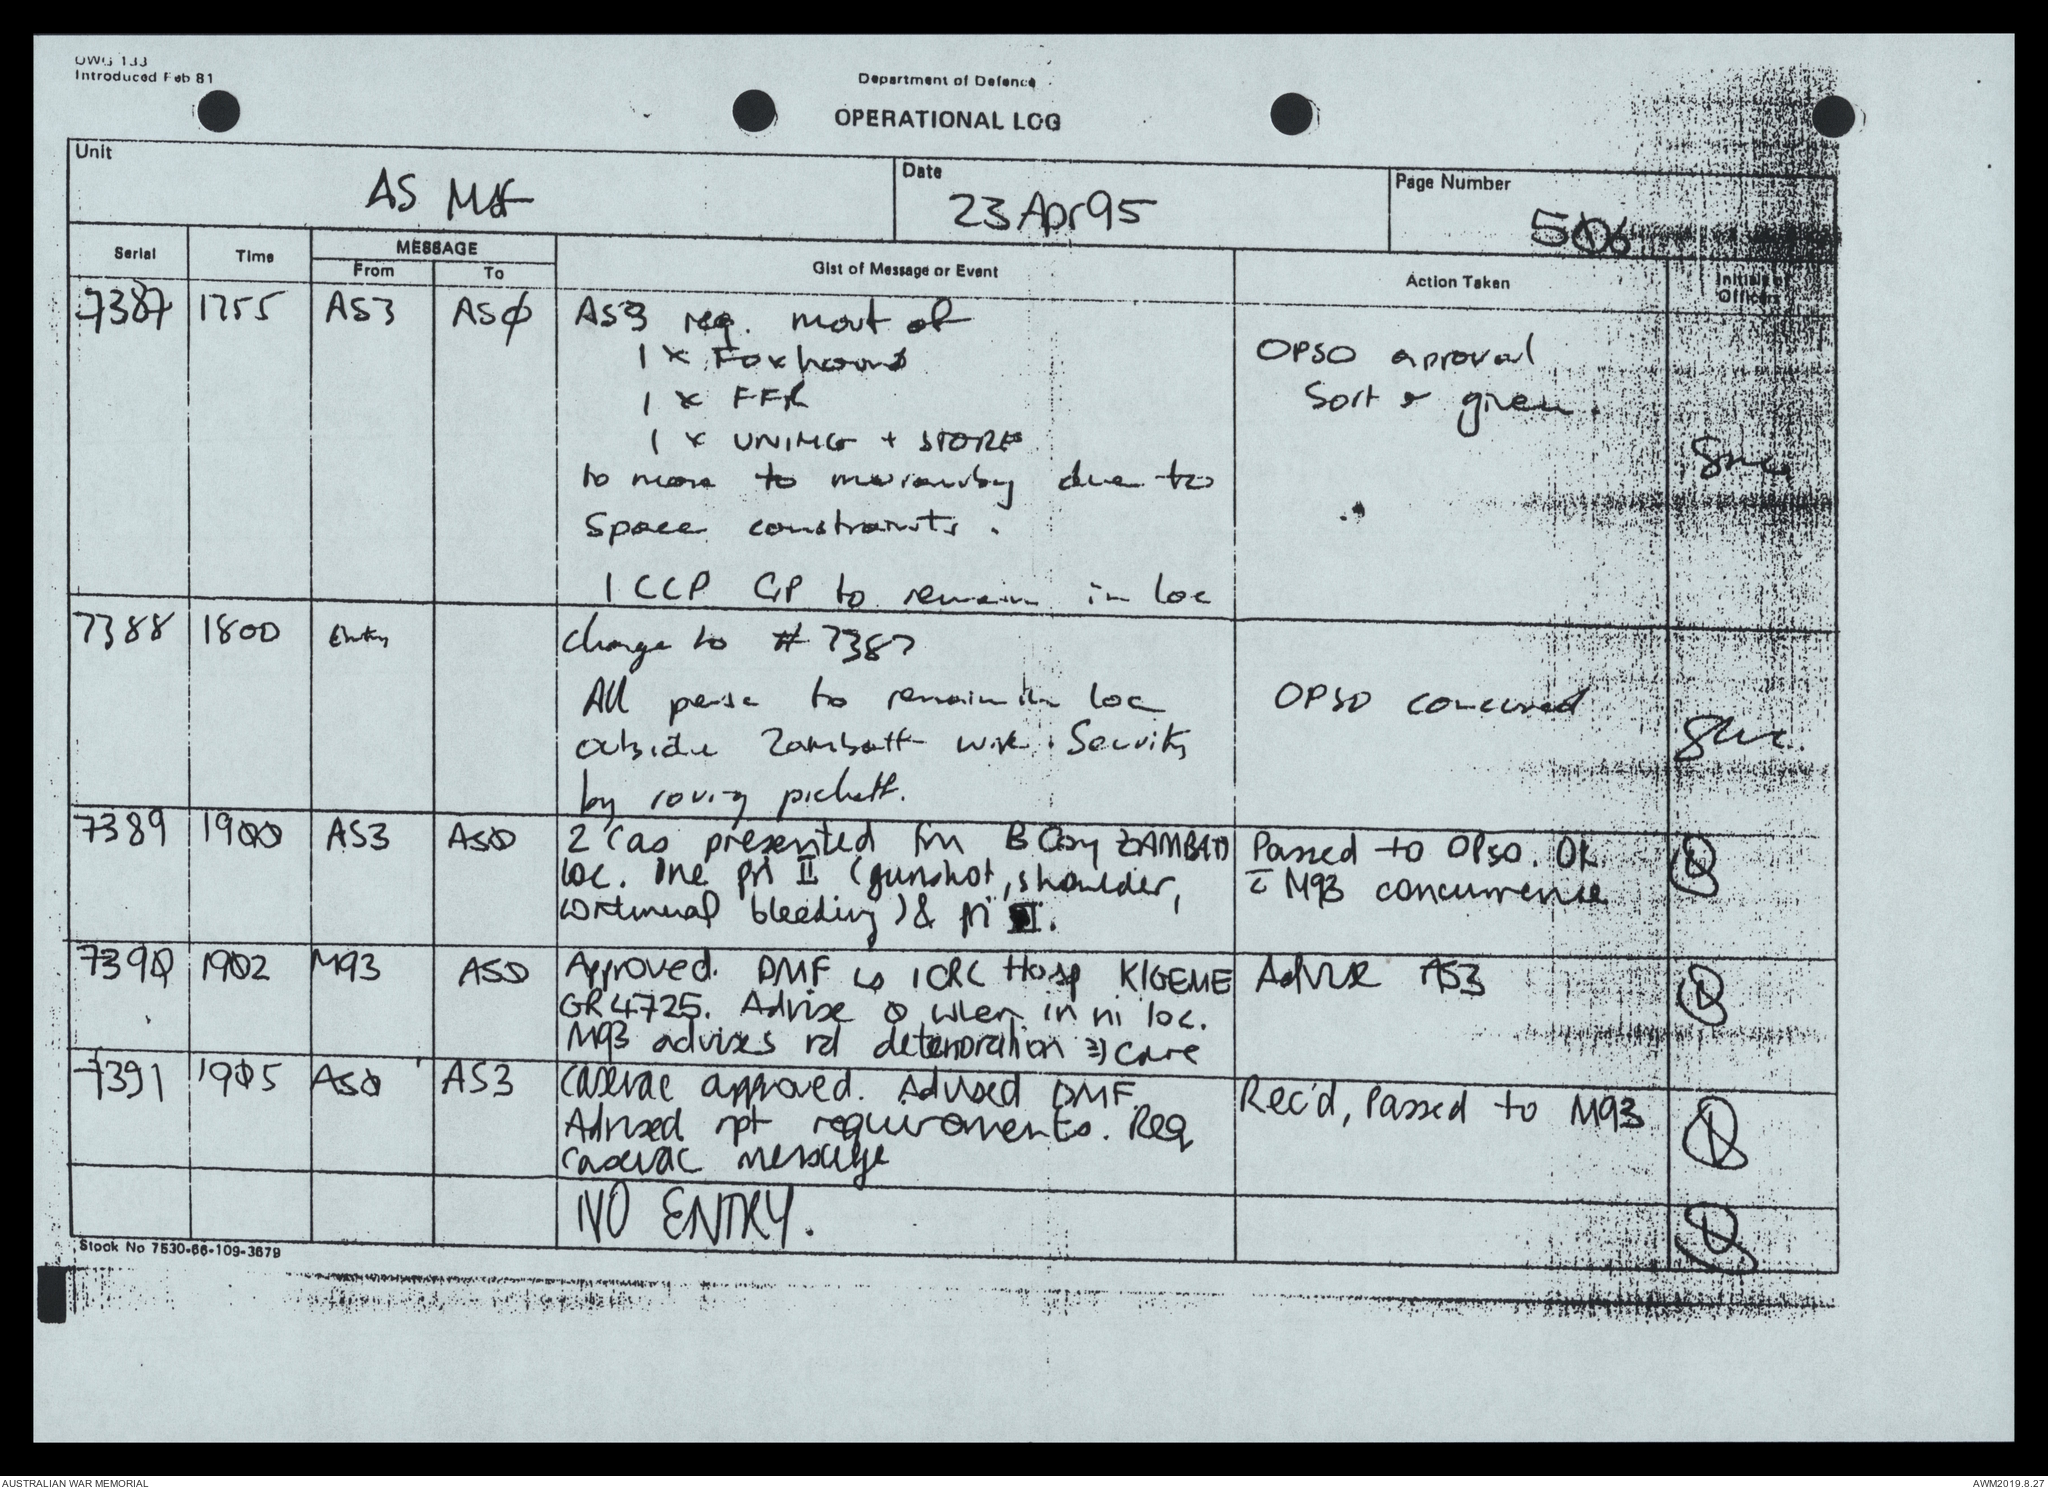 OWG 133
Introduced Feb 81
Department of Defence
OPERATIONAL LOG
Unit
AS
Date
23 Apr 95
Page Number
506
Serial
Time
MESSAGE
From
To
Gist of Message or Event
Action Taken
Initials of
Officers
7387 1755 AS3 ASØ
AS3 req. mout of
1 x Foxhound
1 x FFR
1 x UNIMG + STORE
to move to due to
space constraints.
1 CCP GP to remain in loc
OPSO aproval
given.
7388 1800 Entry
Change to # 7387
All to remain in loc
outside Zambatt with Security
by roving pickett.
OPSO concured
7389 19ØØ AS3 ASØ
2 Cas presented fm B Coy ZAMBATT
loc. One pri II (gunshot, shoulder,
continual bleeding) & pri
Passed to OPSO. OK
c̄ M93 concurrence
739Ø 19Ø2 M93 ASØ
Approved. DMF is ICRC Hosp KIGEME
GR4725. Advise Ø when in ni loc.
M93 advises rd deterioration ⇒) care
Advise AS3
7391 19Ø5 ASØ AS3
Casevac approved. Advised DMF.
Advised rpt requirements. Req
casevac message
Rec'd, Passed to M93
NO ENTRY.
Stock No 7530-66-109-3679
AUSTRALIAN WAR MEMORIAL
AWM2019.8.27